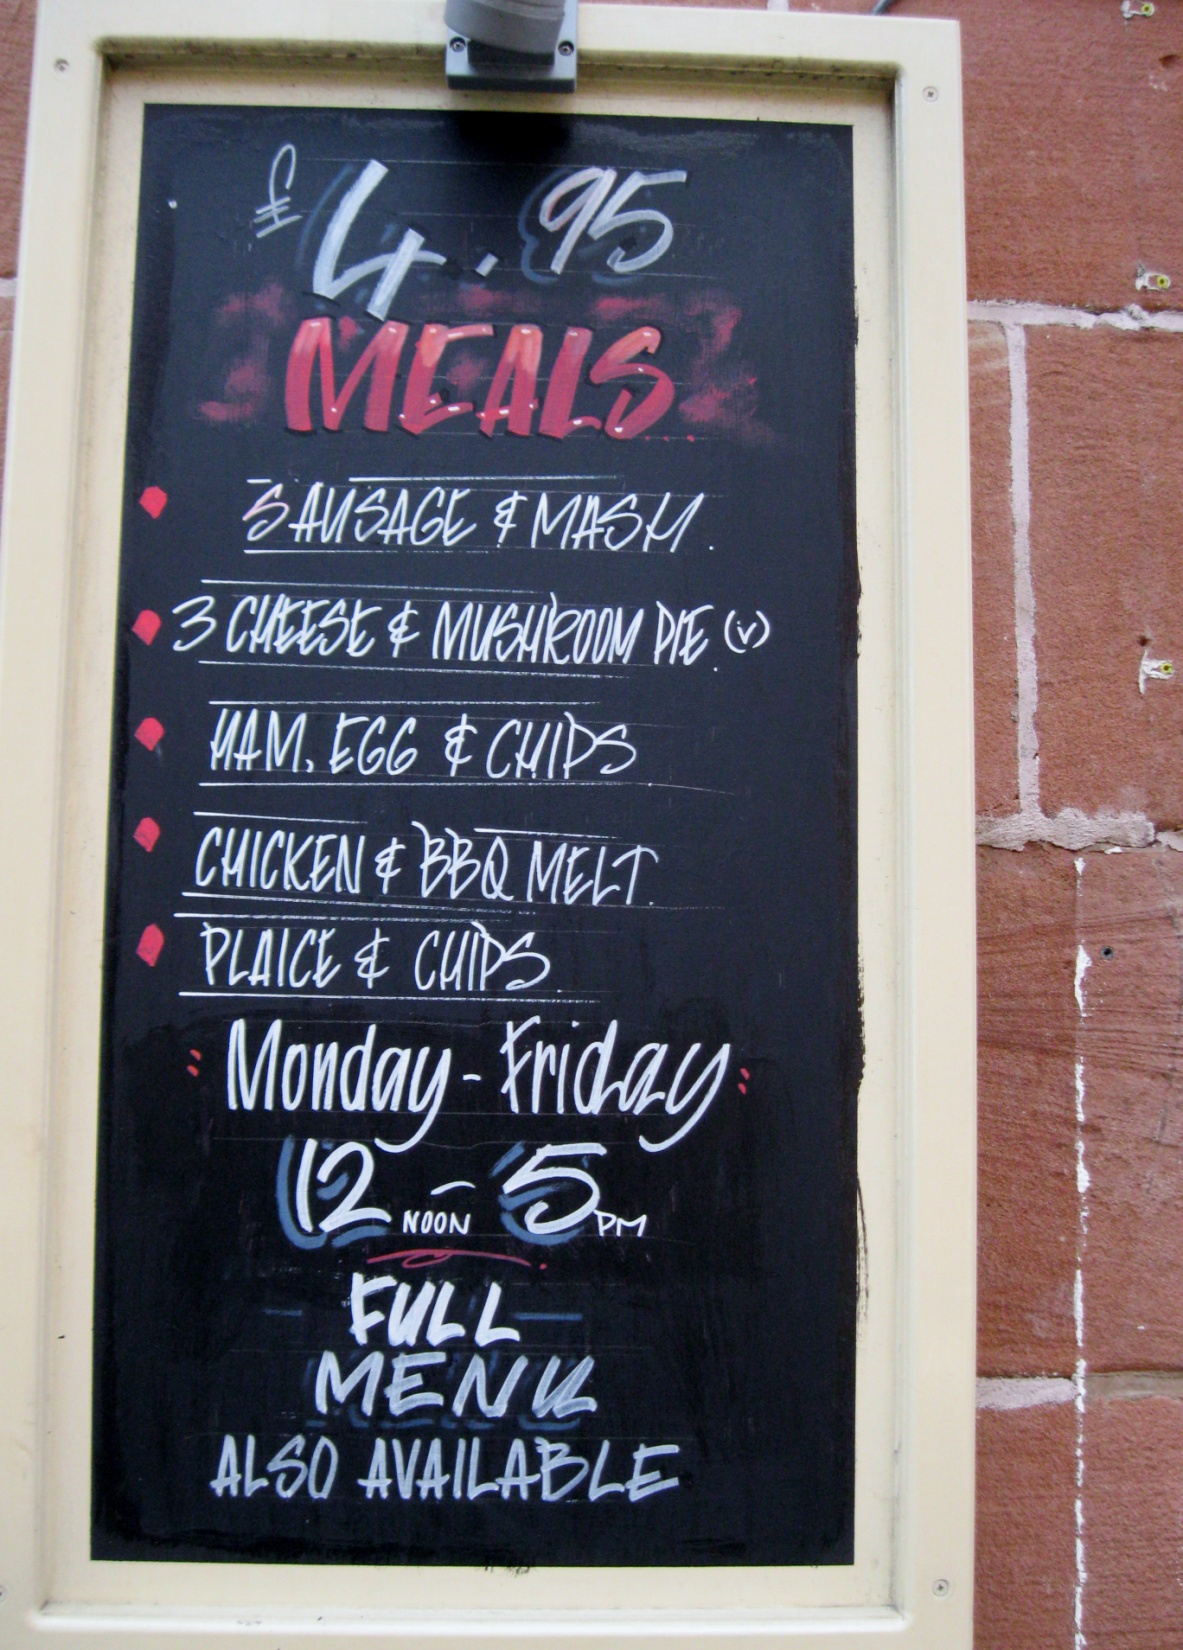 £4.95
MEALS
SAUSAGE & MASH.
3 CHEESE & MUSHROOM PIE. (v)
HAM, EGG & CHIPS
CHICKEN & BBQ MELT.
PLAICE & CHIPS.
Monday - Friday
12 NOON - 5 PM
FULL
MENU
ALSO AVAILABLE